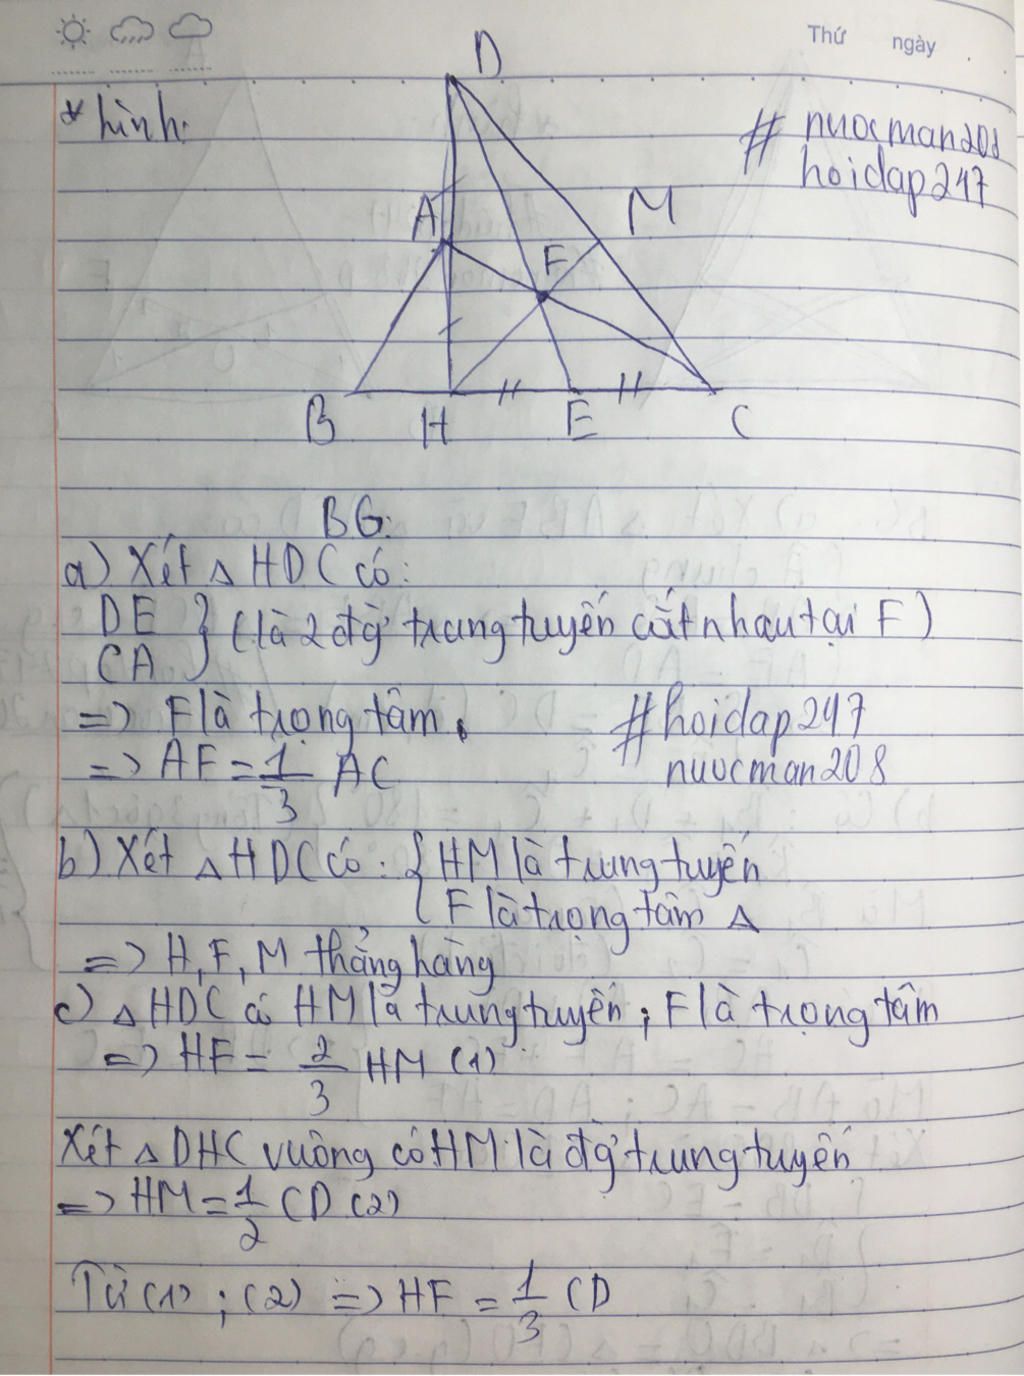 Thứ ngày
* hình:
# nuocman208
hoidap247
D
A
M
F
B H E C
BG:
a) Xét △ HDC có:
DE
CA } (là 2 đg' trung tuyến cắt nhau tại F)
=> F là trọng tâm.
#hoidap247
=> AF = 1/3 AC
nuocman208
b) Xét △HDC có: { HM là trung tuyến
F là trọng tâm △
=> H, F, M thẳng hàng
c) △HDC có HM là trung tuyến; F là trọng tâm
=> HF = 2/3 HM (1)
Xét △DHC vuông có HM là đg' trung tuyến
=> HM = 1/2 CD (2)
Từ (1) ; (2) => HF = 1/3 CD